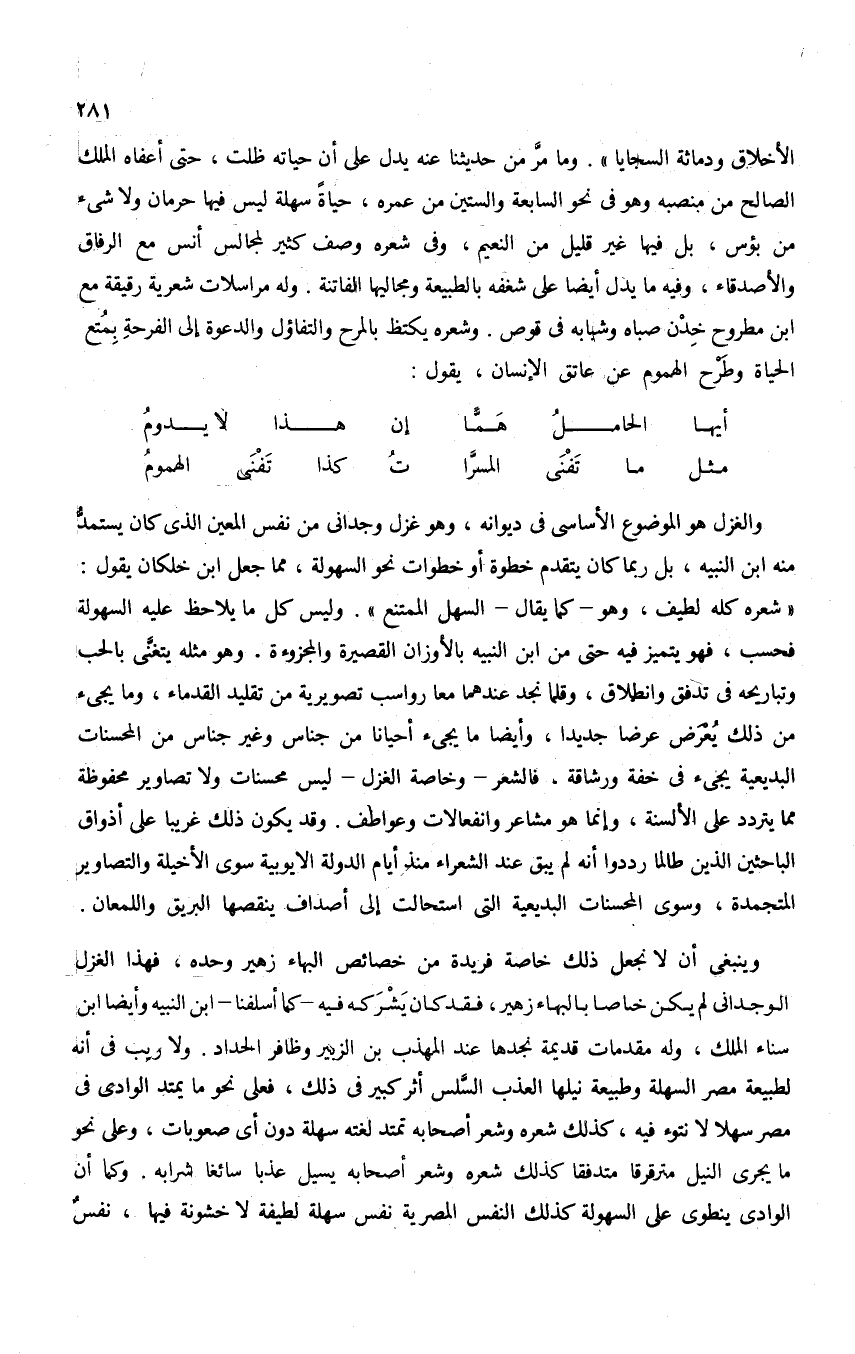 ٢٨١
الأخلاق ودماثة السجايا» . وما مرَّ من حديثنا عنه يدل على أن حياته ظلت ، حتى أعفاه الملك
الصالح من منصبه وهو فى نحو السابعة والستين من عمره ، حياةً سهلة ليس فيها حرمان ولا شىء
من بؤس ، بل فيها غير قليل من النعيم ، وفى شعره وصف كثير لمجالس أنس مع الرفاق
والأصدقاء ، وفيه ما يدل أيضا على شغفه بالطبيعة ومجاليها الفاتنة . وله مراسلات شعرية رقيقة مع
ابن مطروح خِدْن صباه وشبابه فى قوص . وشعره يكتظ بالمرح والتفاؤل والدعوة إلى الفرحةِ بِمُتع
الحياة وطَرْح الهموم عن عاتق الإنسان ، يقول :
أيهـا الحامـــــلُ هَـمًّـا إن هـــــذا لا يـــدومُ
مثـل مـا تَفْنَى المسرَّا تُ كذا تَفْنَى الهمومُ
والغزل هو الموضوع الأساسى فى ديوانه ، وهو غزل وجدانى من نفس المعين الذى كان يستمدُّ
منه ابن النبيه ، بل ربما كان يتقدم خطوة أو خطوات نحو السهولة ، مما جعل ابن خلكان يقول :
«شعره كله لطيف ، وهو – كما يقال – السهل الممتنع» . وليس كل ما يلاحظ عليه السهولة
فحسب ، فهو يتميز فيه حتى من ابن النبيه بالأوزان القصيرة والمجزوءة . وهو مثله يتغنَّى بالحب
وتباريحه فى تدفق وانطلاق ، وقلما نجد عندهما معا رواسب تصويرية من تقليد القدماء ، وما يجىء
من ذلك يُعْرَض عرضا جديدا ، وأيضا ما يجىء أحيانا من جناس وغير جناس من المحسنات
البديعية يجىء فى خفة ورشاقة . فالشعر – وخاصة الغزل – ليس محسنات ولا تصاوير محفوظة
مما يتردد على الألسنة ، وإنما هو مشاعر وانفعالات وعواطف . وقد يكون ذلك غريبا على أذواق
الباحثين الذين طالما رددوا أنه لم يبق عند الشعراء منذ أيام الدولة الايوبية سوى الأخيلة والتصاوير
المتجمدة ، وسوى المحسنات البديعية التى استحالت إلى أصداف ينقصها البريق واللمعان .
وينبغى أن لا نجعل ذلك خاصة فريدة من خصائص البهاء زهير وحده ، فهذا الغزل
الوجدانى لم يكن خاصا بالبهاء زهير ، فقد كان يَشْرَكه فيه – كما أسلفنا – ابن النبيه وأيضا ابن
سناء الملك ، وله مقدمات قديمة نجدها عند المهذب بن الزبير وظافر الحداد . ولا ريب فى أنه
لطبيعة مصر السهلة وطبيعة نيلها العذب السَّلس أثر كبير فى ذلك ، فعلى نحو ما يمتد الوادى فى
مصر سهلا لا نتوء فيه ، كذلك شعره وشعر أصحابه تمتد لغته سهلة دون أى صعوبات ، وعلى نحو
ما يجرى النيل مترقرقا متدفقا كذلك شعره وشعر أصحابه يسيل عذبا سائغا شرابه . وكما أن
الوادى ينطوى على السهولة كذلك النفس المصرية نفس سهلة لطيفة لا خشونة فيها ، نفسٌ